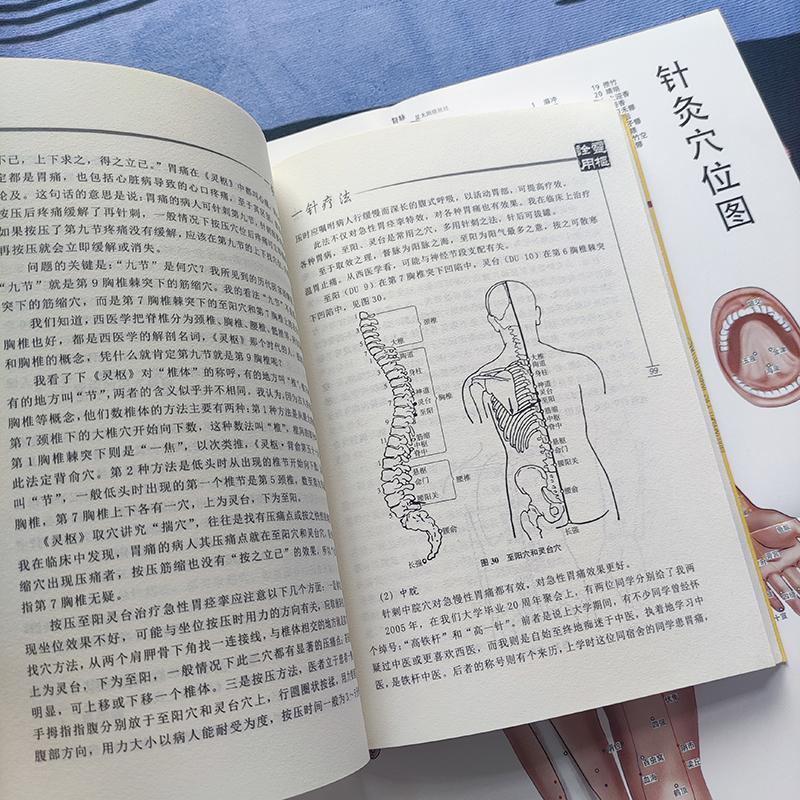 不已，上下求之，得之立已。”胃痛在《灵枢》中都叫心痛，
定都是胃痛，也包括心脏病导致的心口疼痛，至于真
论及。这句话的意思是说：胃痛的病人可针刺第九节，针刺
按压后疼痛缓解了再针刺，一般情况下按压穴位后疼痛
如果按压了第九节疼痛没有缓解，应该在第九节的上下找
再按压就会立即缓解或消失。
问题的关键是：“九节”是何穴？我所见到的历代
“九节”就是第9胸椎棘突下的筋缩穴。我的看法“九节”不
突下的筋缩穴，而是第7胸椎棘突下的至阳穴和第
我们知道，西医学把脊椎分为颈椎、胸椎、腰椎、骶
胸椎也好，都是西医学的解剖名词，《灵枢》那个时代的人
和胸椎的概念，凭什么就肯定第九节就是第9胸椎呢？
我看了下《灵枢》对“椎体”的称呼，有的地方叫“椎”，
有的地方叫“节”，两者的含义似乎并不相同。我认为，因为古人
胸椎等概念，他们数椎体的方法主要有两种：第1种方法是从
第7颈椎下的大椎穴开始向下数，这种数法叫“椎”，
第1胸椎棘突下则是“一焦”，以次类推，《灵枢·背俞第五十一
此法定背俞穴。第2种方法是低头时从出现的椎节开始向下
叫“节”，一般低头时出现的第一个椎节是第5颈椎，
胸椎，第7胸椎上下各有一穴，上为灵台，下为至阳。
《灵枢》取穴讲究“揣穴”，往往是找有压痛点或按之
我在临床中发现，胃痛的病人其压痛点就在至阳穴和灵台
缩穴出现压痛者，按压筋缩也没有“按之立已”的效果，
指第7胸椎无疑。
按压至阳灵台治疗急性胃痉挛应注意以下几个方面：一是
现坐位效果不好，可能与坐位按压时用力的方向有关，
找穴方法，从两个肩胛骨下角找一连接线，与椎体相交的地方
上为灵台，下为至阳，一般情况下此二穴都有显著的压痛点，
明显，可上移或下移一个椎体。三是按压方法，医者立于患者
手拇指指腹分别放于至阳穴和灵台穴上，行圆圈状按揉，用力
腹部方向，用力大小以病人能耐受为度，按压时间一般为3～5
一针疗法
靈樞
詮用
压时应嘱咐病人行缓慢而深长的腹式呼吸，以活动胃部，可提高疗效。
此法不仅对急性胃痉挛特效，对各种胃痛也有效果。我在临床上治疗
各种胃病，至阳、灵台是常用之穴，多用针刺之法，针后可拔罐。
至于取效之理，督脉为阳脉之海，至阳为阳气最多之意，按之可散寒
温胃止痛。从西医学看，可能与神经节段支配有关。
至阳（DU 9）在第7胸椎棘突下凹陷中，灵台（DU 10）在第6胸椎棘突
下凹陷中，见图30。
颈椎
大椎
陶道
身柱
神道
灵台
至阳
胸椎
筋缩
中枢
脊中
悬枢
命门
腰椎
腰阳关
腰俞
长强
大椎
陶道
身柱
神道
灵台
至阳
筋缩
中枢
脊中
悬枢
命门
腰阳关
腰俞
长强
图30 至阳穴和灵台穴
(2) 中脘
针刺中脘穴对急慢性胃痛都有效，对急性胃痛效果更好。
2005年，在我们大学毕业20周年聚会上，有两位同学分别给了我两
个绰号：“高铁杆”和“高一针”。前者是说上大学期间，有不少同学曾经怀
疑过中医或更喜欢西医，而我则是自始至终地痴迷于中医，执着地学习中
医，是铁杆中医。后者的称号则有个来历，上学时这位同宿舍的同学患胃痛，
99
针灸穴位图
19 攒竹
20 睛明